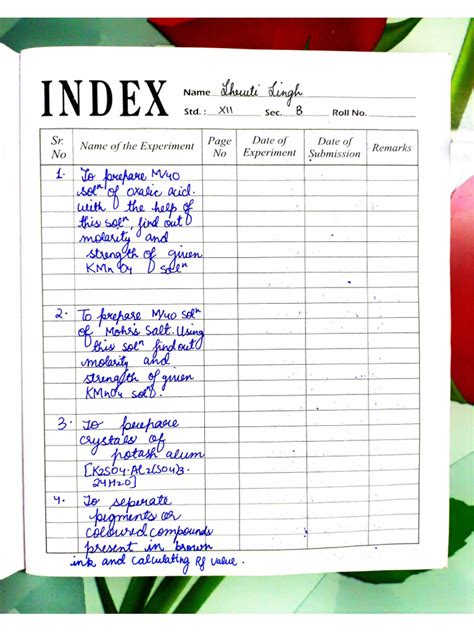 INDEX
Name Singh
Std.: XII Sec. B Roll No.
Sr. No Name of the Experiment Page No Date of Experiment Date of Submission Remarks
1. To prepare M/40
solⁿ of oxalic acid.
with the help of
this solⁿ, find out
molarity and
strength of given
KMnO4 solⁿ
2. To prepare M/40 solⁿ
of Mohr's Salt. Using
this solⁿ find out
molarity and
strength of given
KMnO4 solⁿ.
3. To prepare
crystals of
potash alum
[K2SO4.Al2(SO4)3.
24H2O]
4. To seperate
pigments or
coloured compounds
present in brown
ink and calculating Rf value.